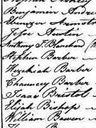 Benjamin
Ebenezer
Jesse Austin
Anthony S. Blanchard
Stephen Barber
Hezekiah Barber
Chauncey Barber
Isaac Bristol
Elijah Bishop
William Bowen